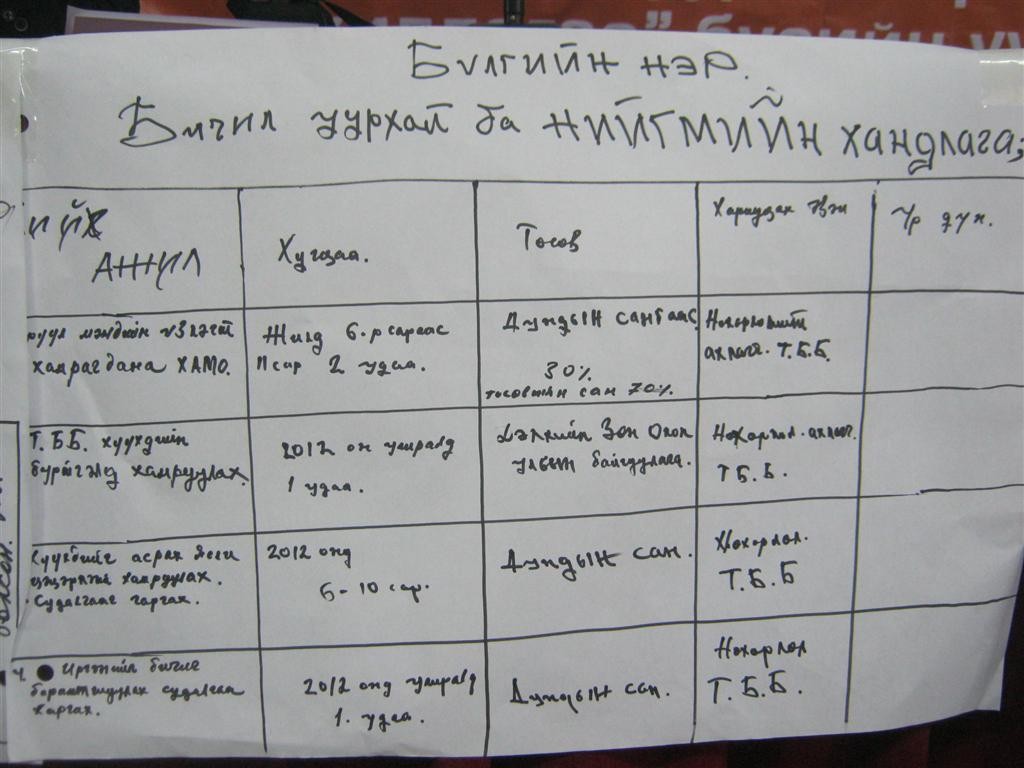 Бүлгийн нэр.
Бичил уурхай ба нийгмийн хандлага;
ийх
ажил
Хугцаа.
Төсөв
Хариуцах эзэн
Үр дүн.
эрүүл мэндийн үзлэгт
хамрагдана ХАМО.
Жилд 6-р сараас
11 сар 2 удаа.
Дундын сангаас
30%
төсөвийн сан 70%.
Нөхөрлөлийн
ахлагч. Т.Б.Б.
Т.ББ. хүүхдийн
бүртгэлд хамруулах.
2012 он улиралд
1 удаа.
Дэлхийн Зөн Олон
улсын байгууллага.
Нөхөрлөл. ахлагч.
Т Б. Б.
Хүүхдийг асрах
цэцэрлэгт хамруулах.
Судалгааг гаргах.
2012 онд
6-10 сар.
Дундын сан.
Нөхөрлөл.
Т.Б.Б
4. Иргэний бичиг
баримтжуулах судалгаа
гаргах.
2012 онд улиралд
1. удаа.
Дундын сан.
Нөхөрлөл
Т.Б.Б.